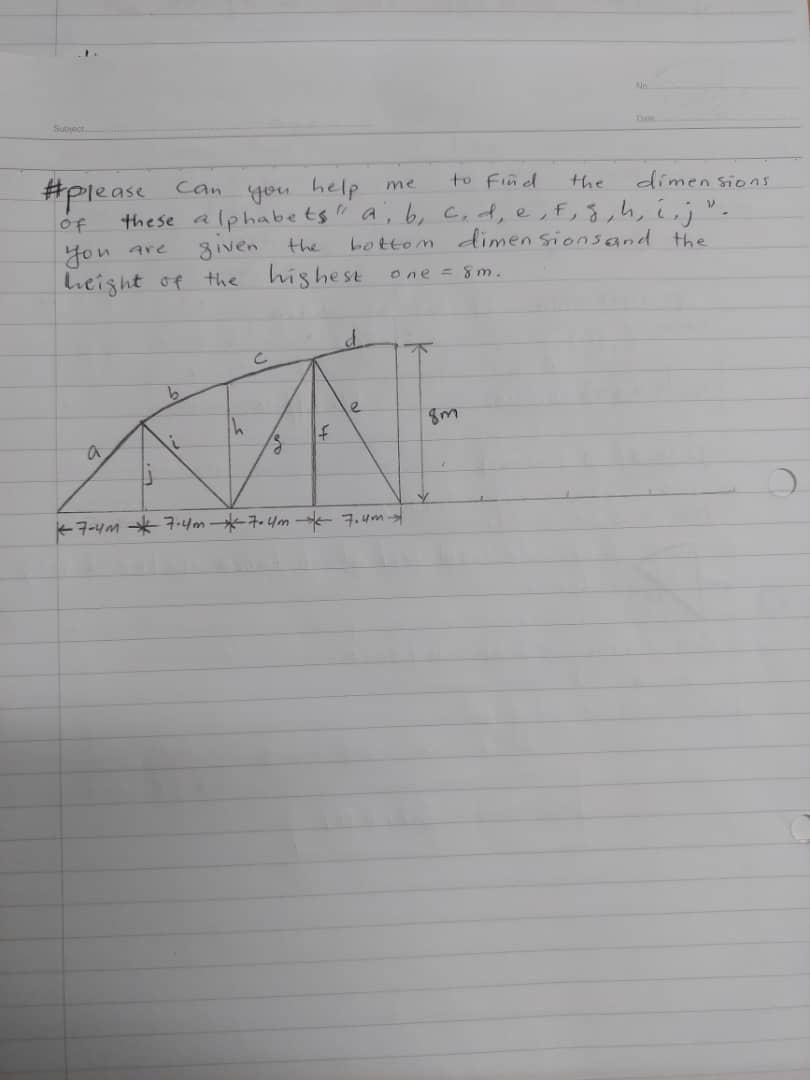 No.
Date
Subject
#please can you help me to find the dimensions
of these alphabets " a, b, c, d, e, f, g, h, i, j ".
you are given the bottom dimensions and the
height of the highest one = 8m.
d
c
b
e
8m
h
f
i
g
a
j
7.4m 7.4m 7.4m 7.4m